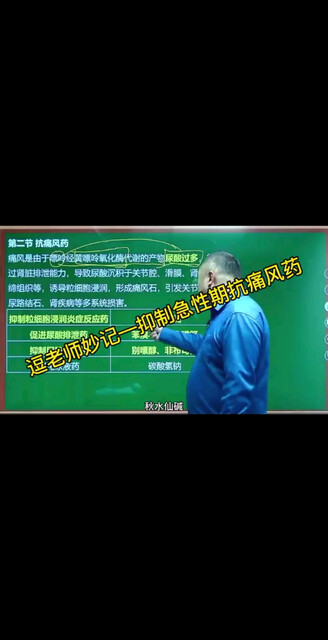 第二节 抗痛风药
痛风是由于嘌呤经黄嘌呤氧化酶代谢的产物尿酸过多,
过肾脏排泄能力,导致尿酸沉积于关节腔、滑膜、肾
缔组织等,诱导粒细胞浸润,形成痛风石,引发关节
尿路结石、肾疾病等多系统损害。
抑制粒细胞浸润炎症反应药
促进尿酸排泄药 苯溴
抑制 别嘌醇、非布
液药 碳酸氢钠
逗老师妙记一抑制急性期抗痛风药
秋水仙碱